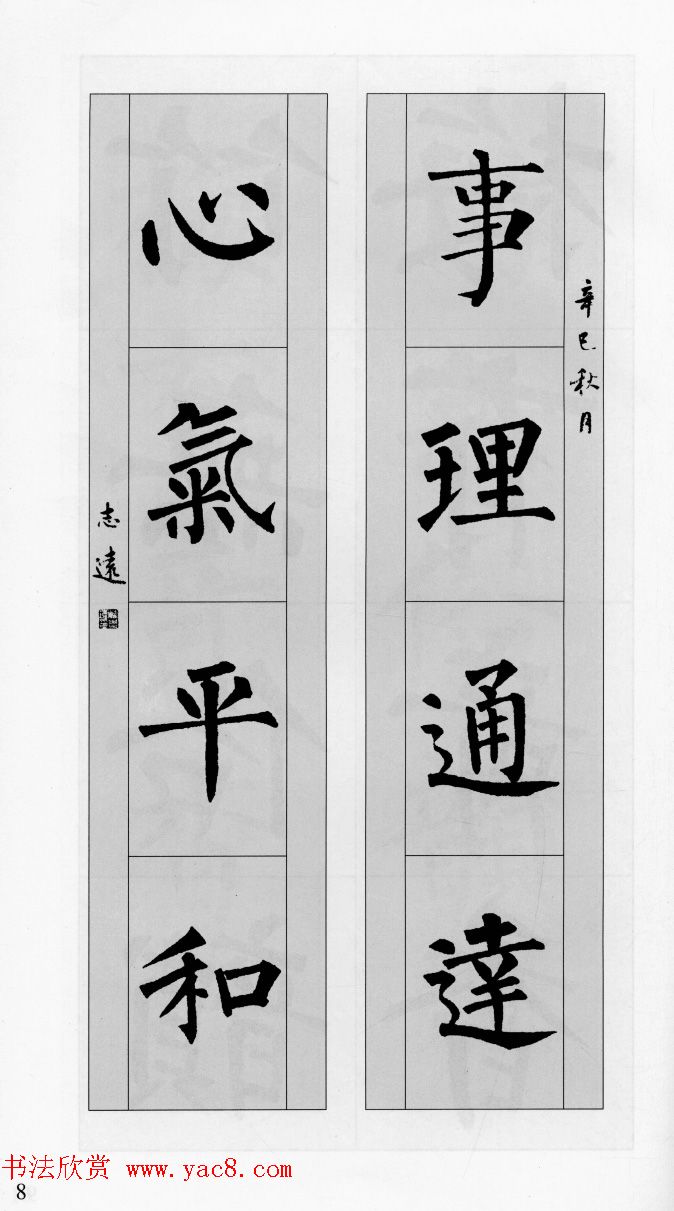 辛巳秋月
事理通達
心氣平和
志遠
书法欣赏 www.yac8.com
8